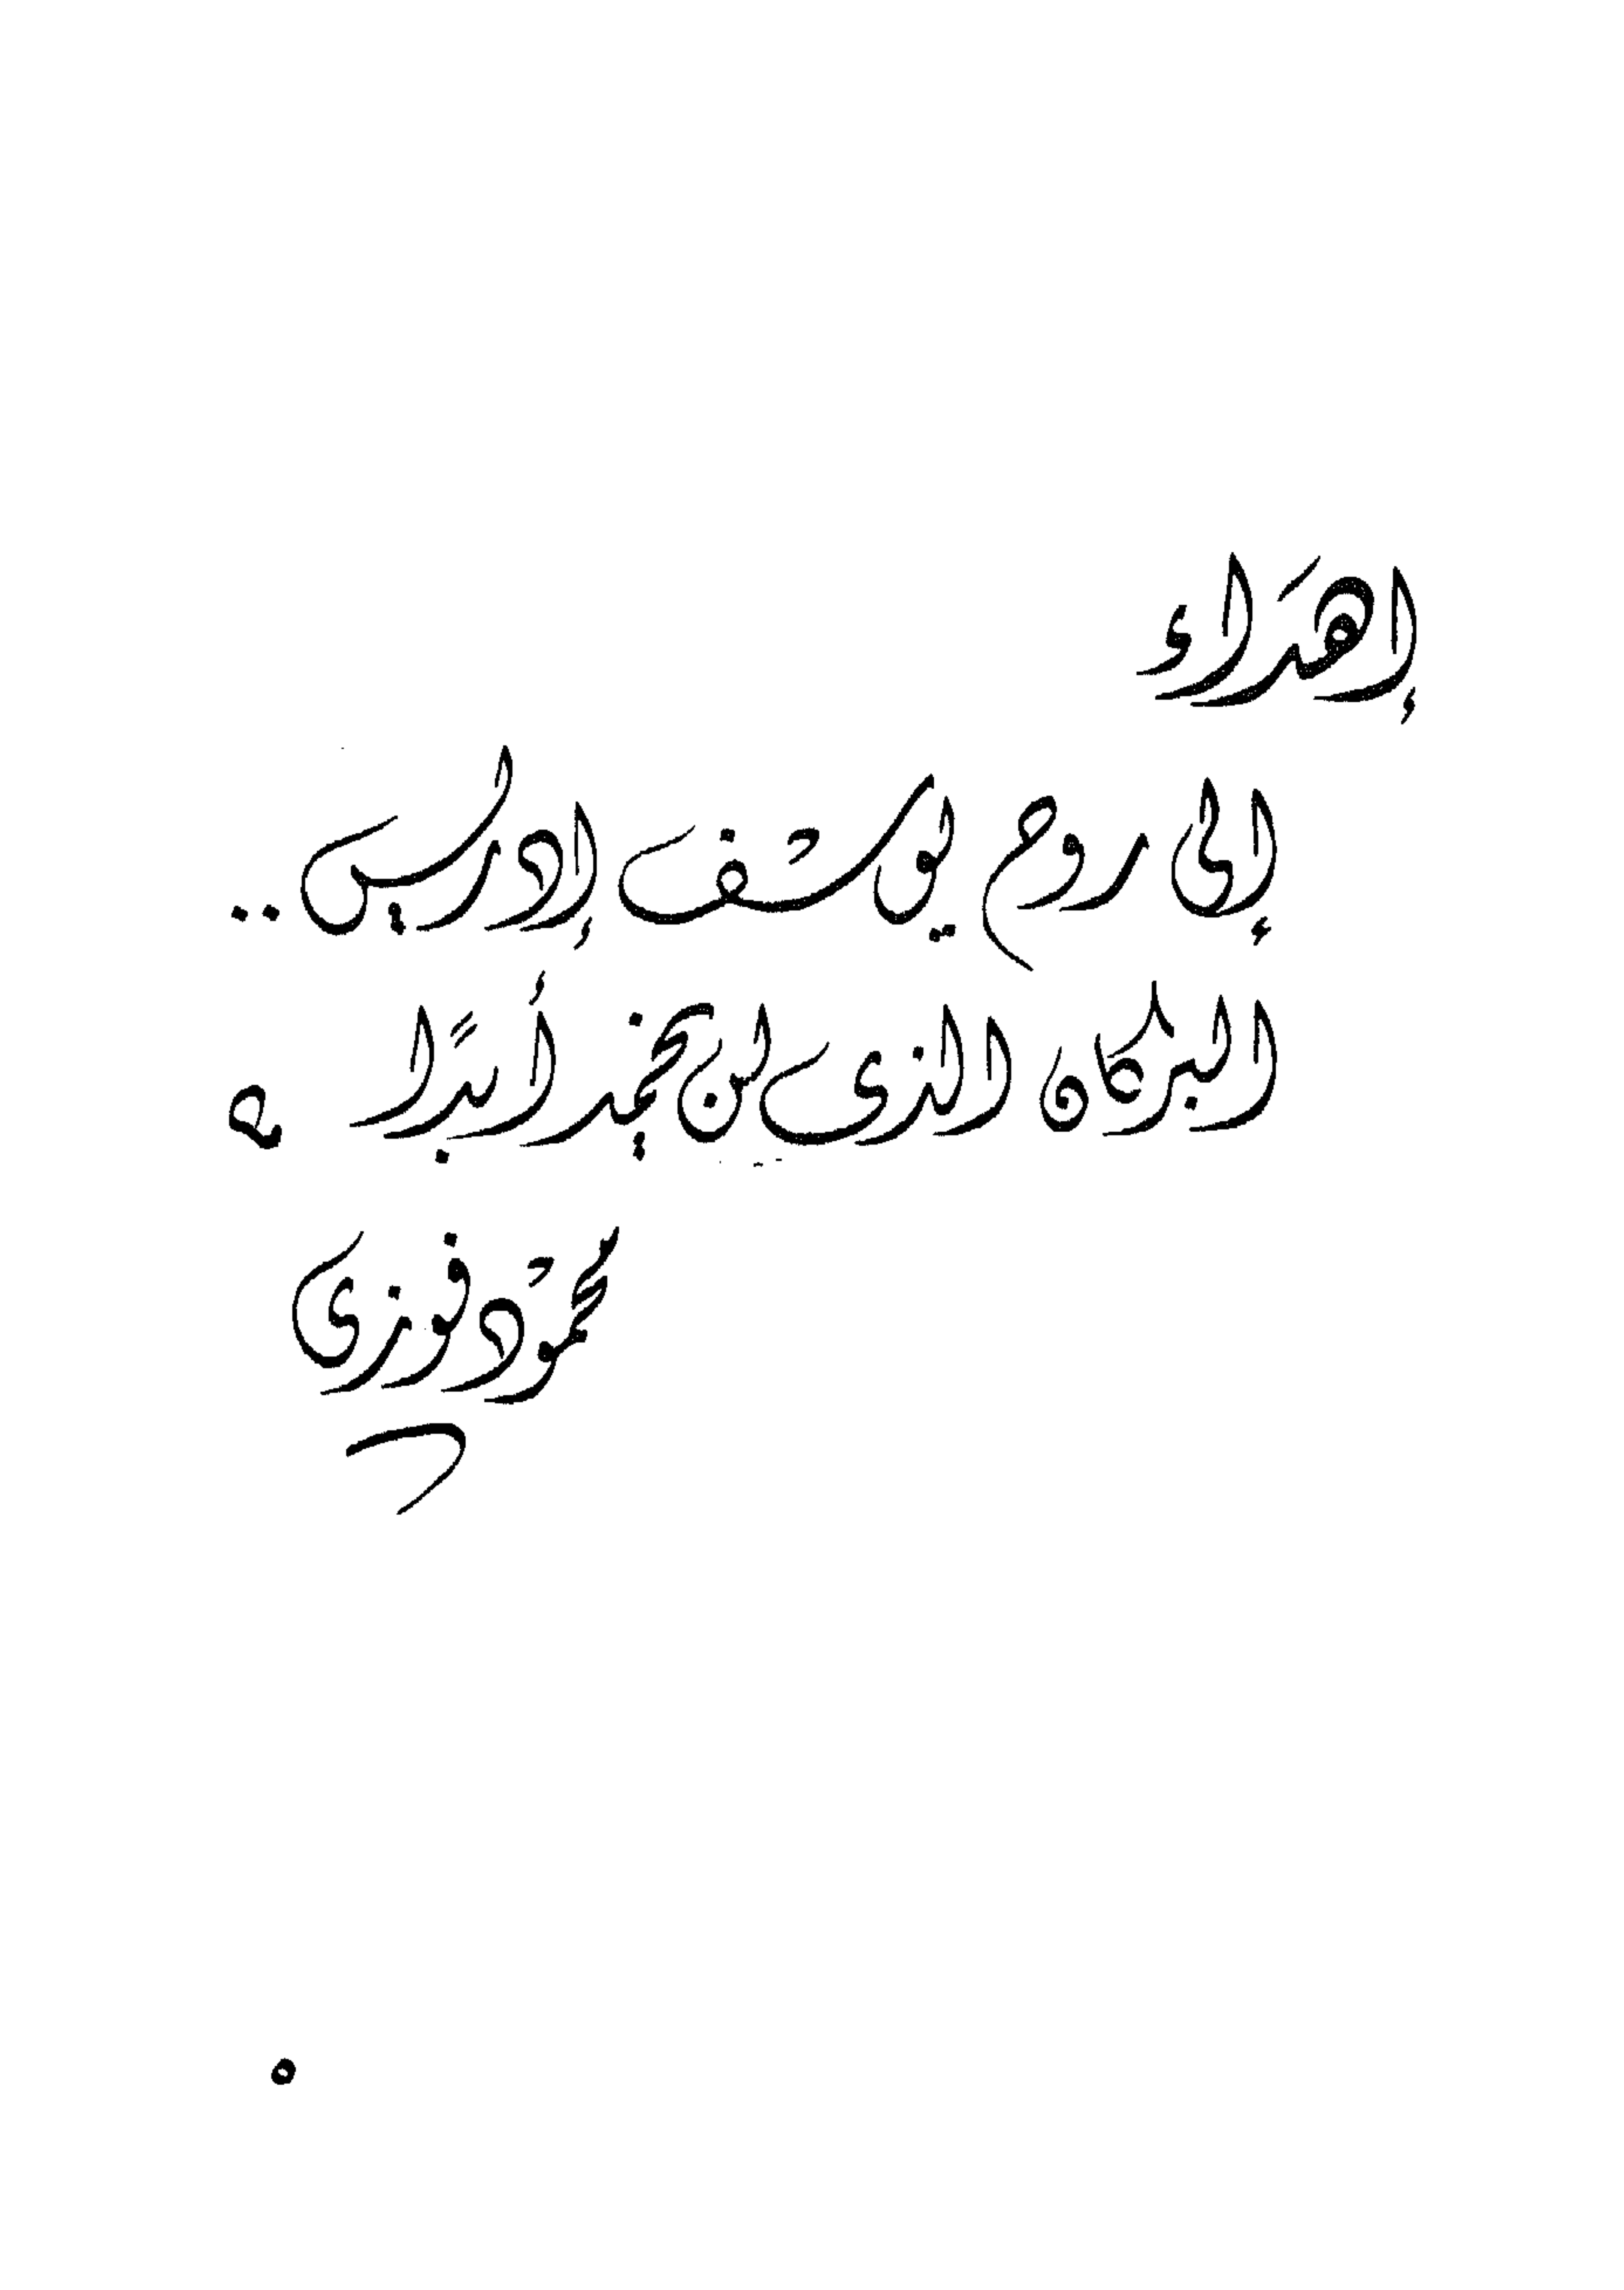 إهداء
إلى روح يوسف إدريس ..
البركان الذى لن يخمد أبدًا
محمود فوزى
٥